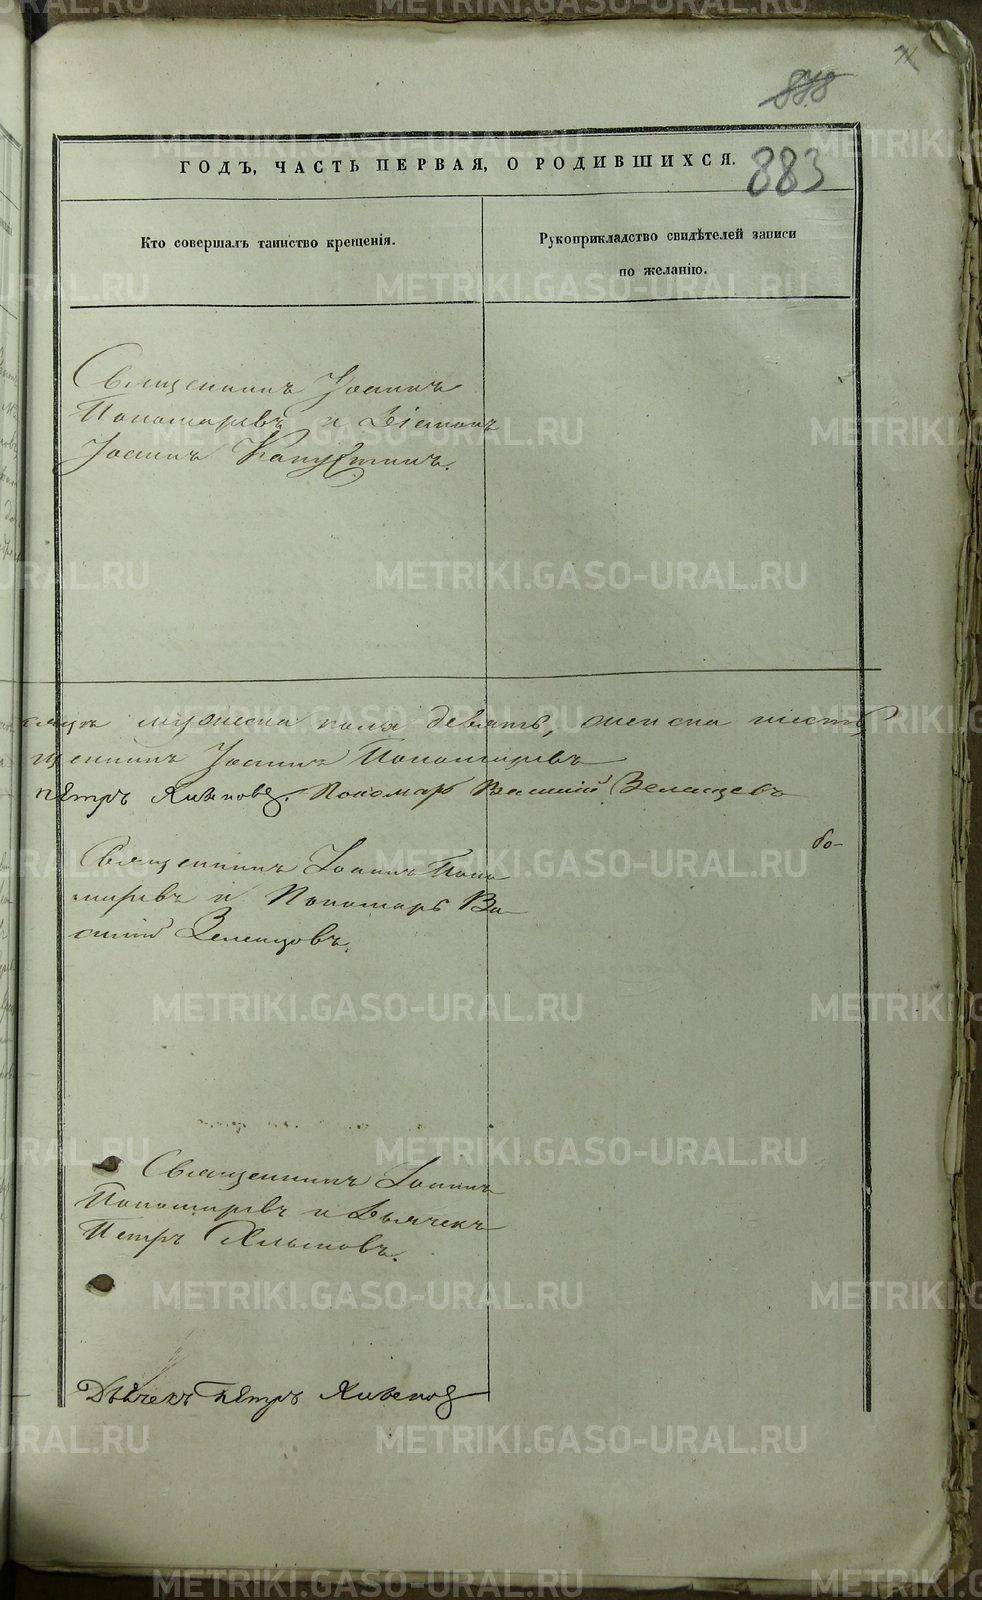 878
883
ГОДЪ, ЧАСТЬ ПЕРВАЯ, О РОДИВШИХСЯ.
Кто совершалъ таинство крещенія.
Рукоприкладство свидѣтелей записи
по желанію.
Священникъ Іоаннъ
Пономаревъ и Діаконъ
Іоаннъ Капустинъ.
мужеска пола девять, женска шесть
щенникъ Іоаннъ Пономаревъ
Петръ Пономарь Василій Зеленцовъ
Священникъ Іоаннъ Поно
маревъ и Пономарь Ва-
силій Зеленцовъ.
бо-
Священникъ Іоаннъ
Пономаревъ и Дьячекъ
Петръ
Дьячекъ Петръ
METRIKI.GASO-URAL.RU